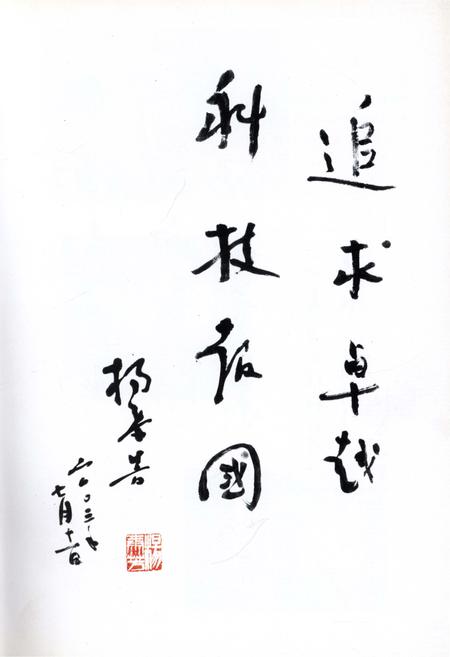 追求卓越
科技报國
杨
二〇〇三年
七月十一日